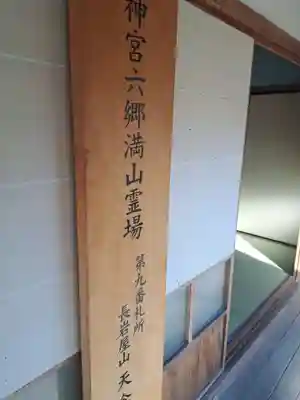 神宮六郷満山霊場
第九番札所
長岩屋山 天